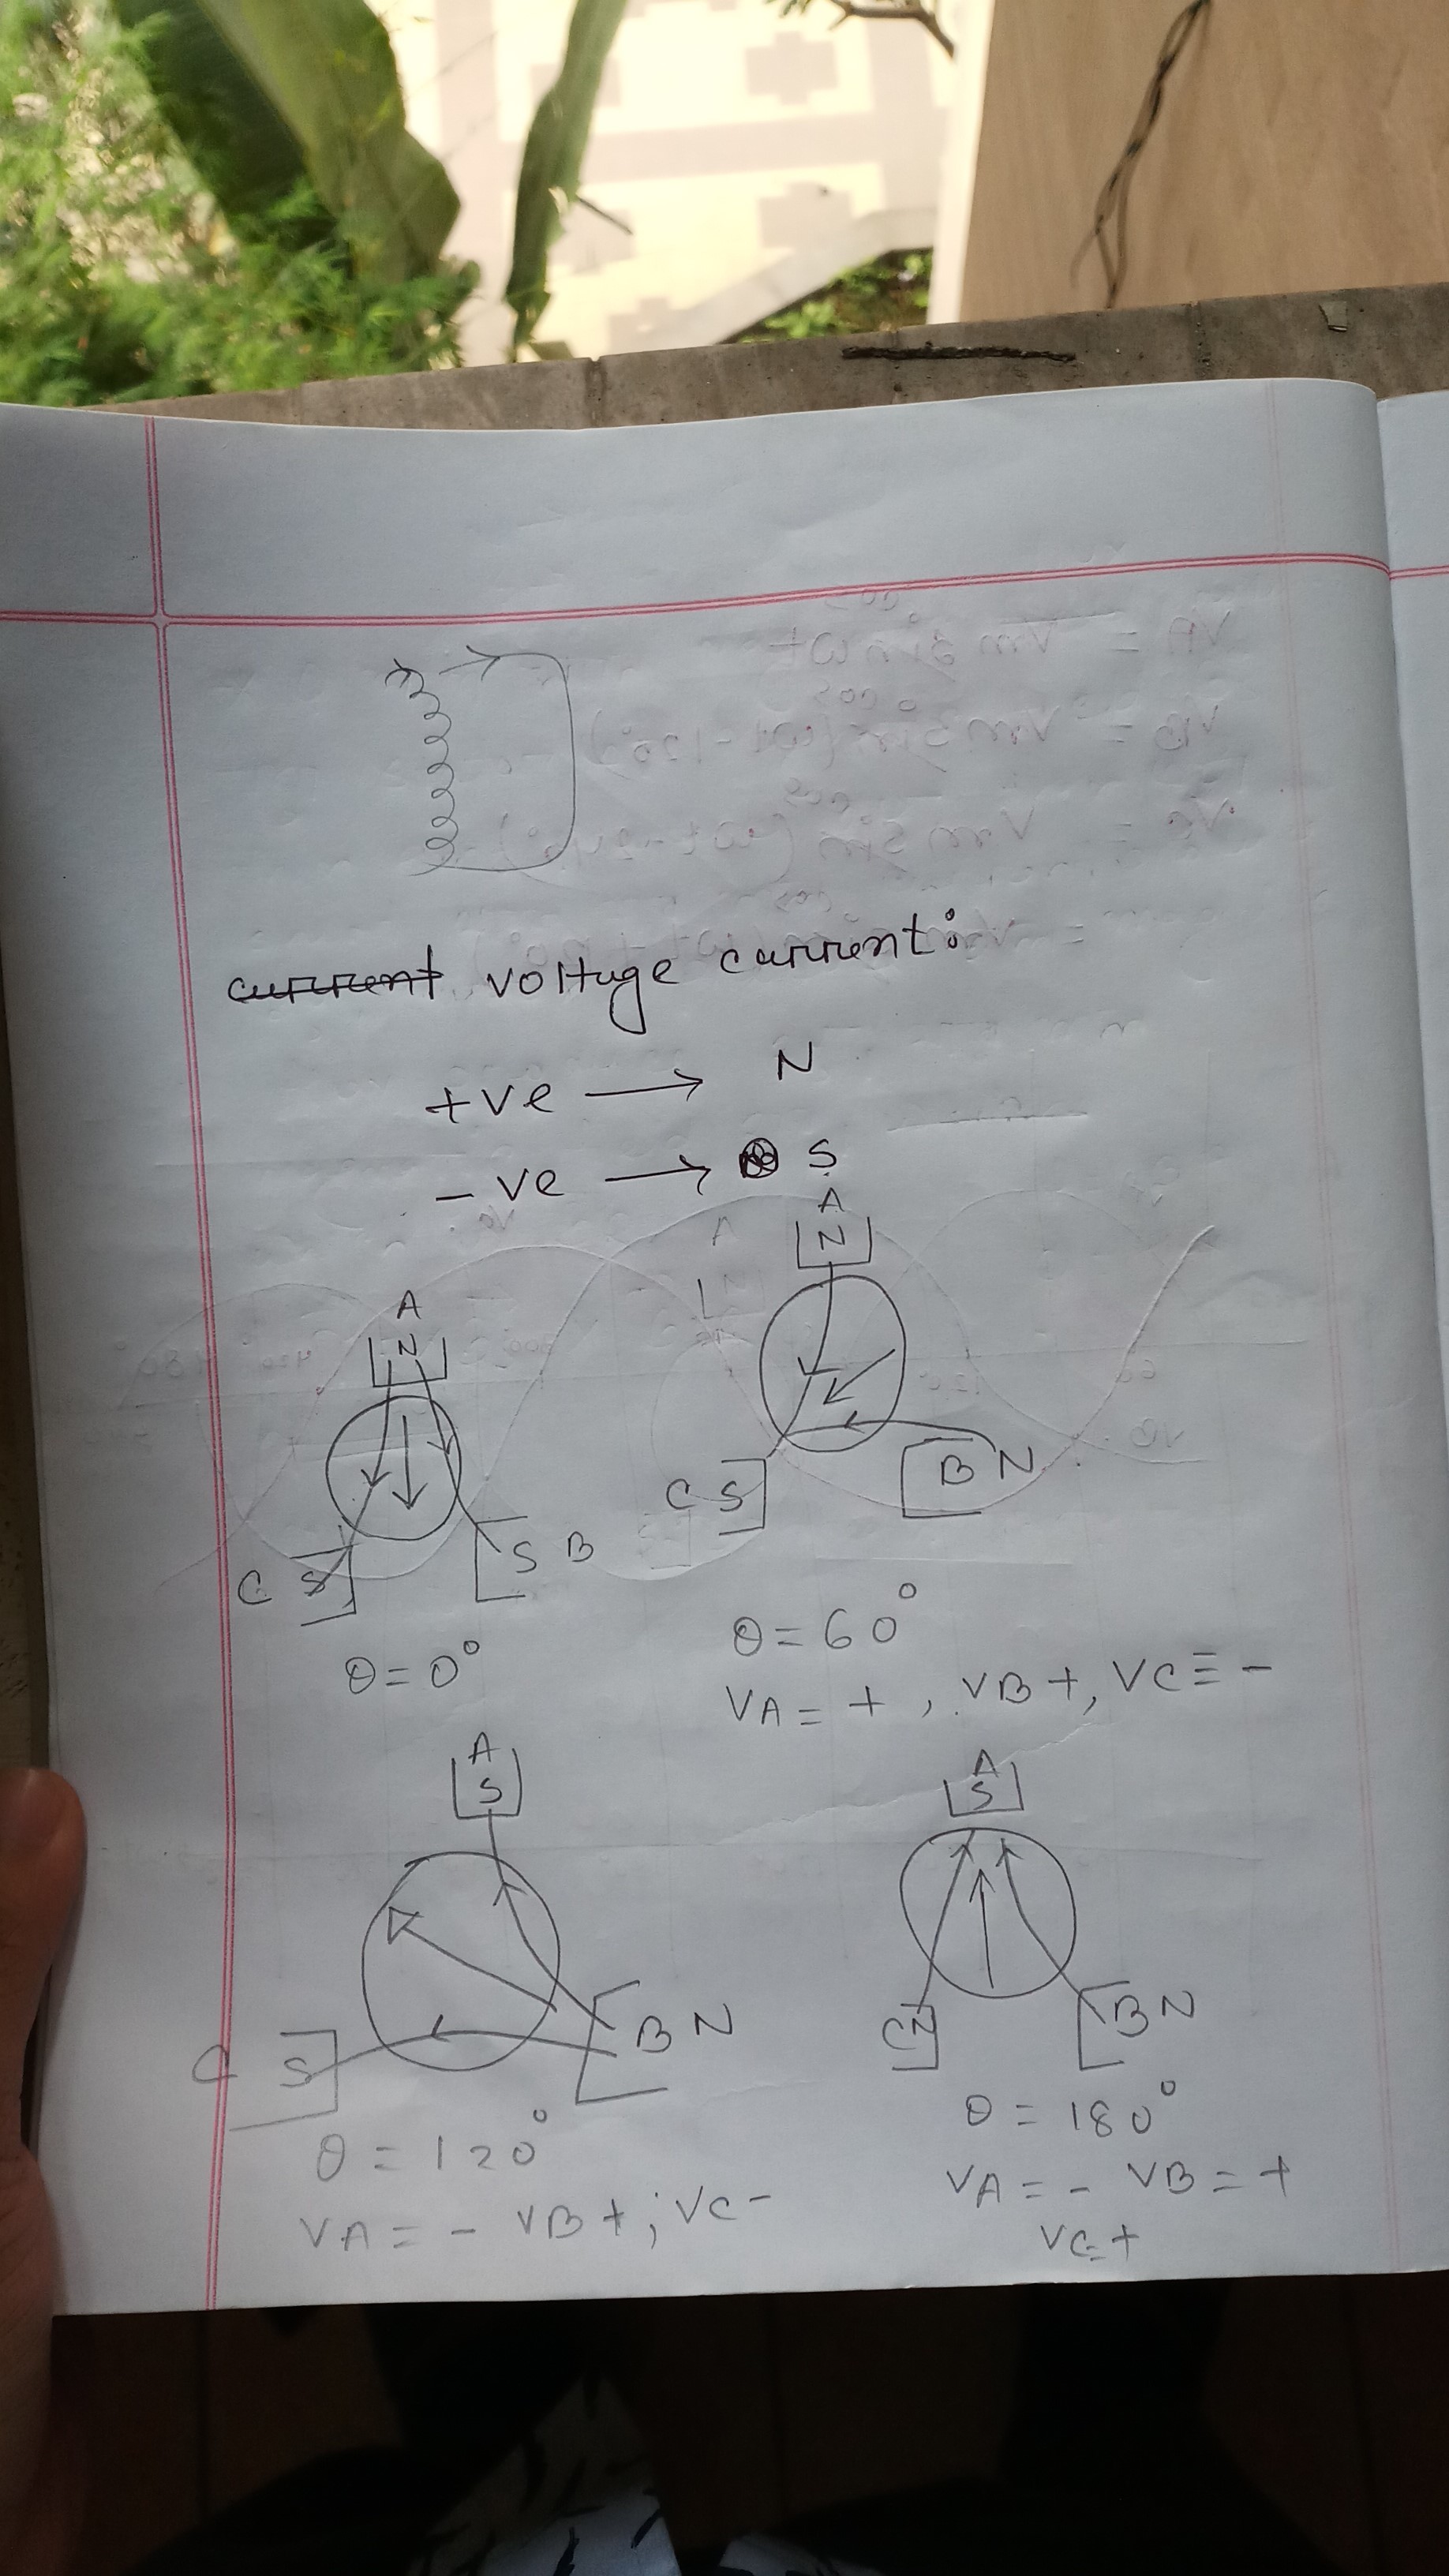 current voltage current:
+ve → N
- ve → S
A
N
C S
S B
θ = 0°
A
N
C S
B N
θ = 60°
VA = + , VB +, VC = -
A
S
C S
B N
θ = 120°
VA = - VB + ; VC -
A
S
C N
B N
θ = 180°
VA = - VB = +
VC = +